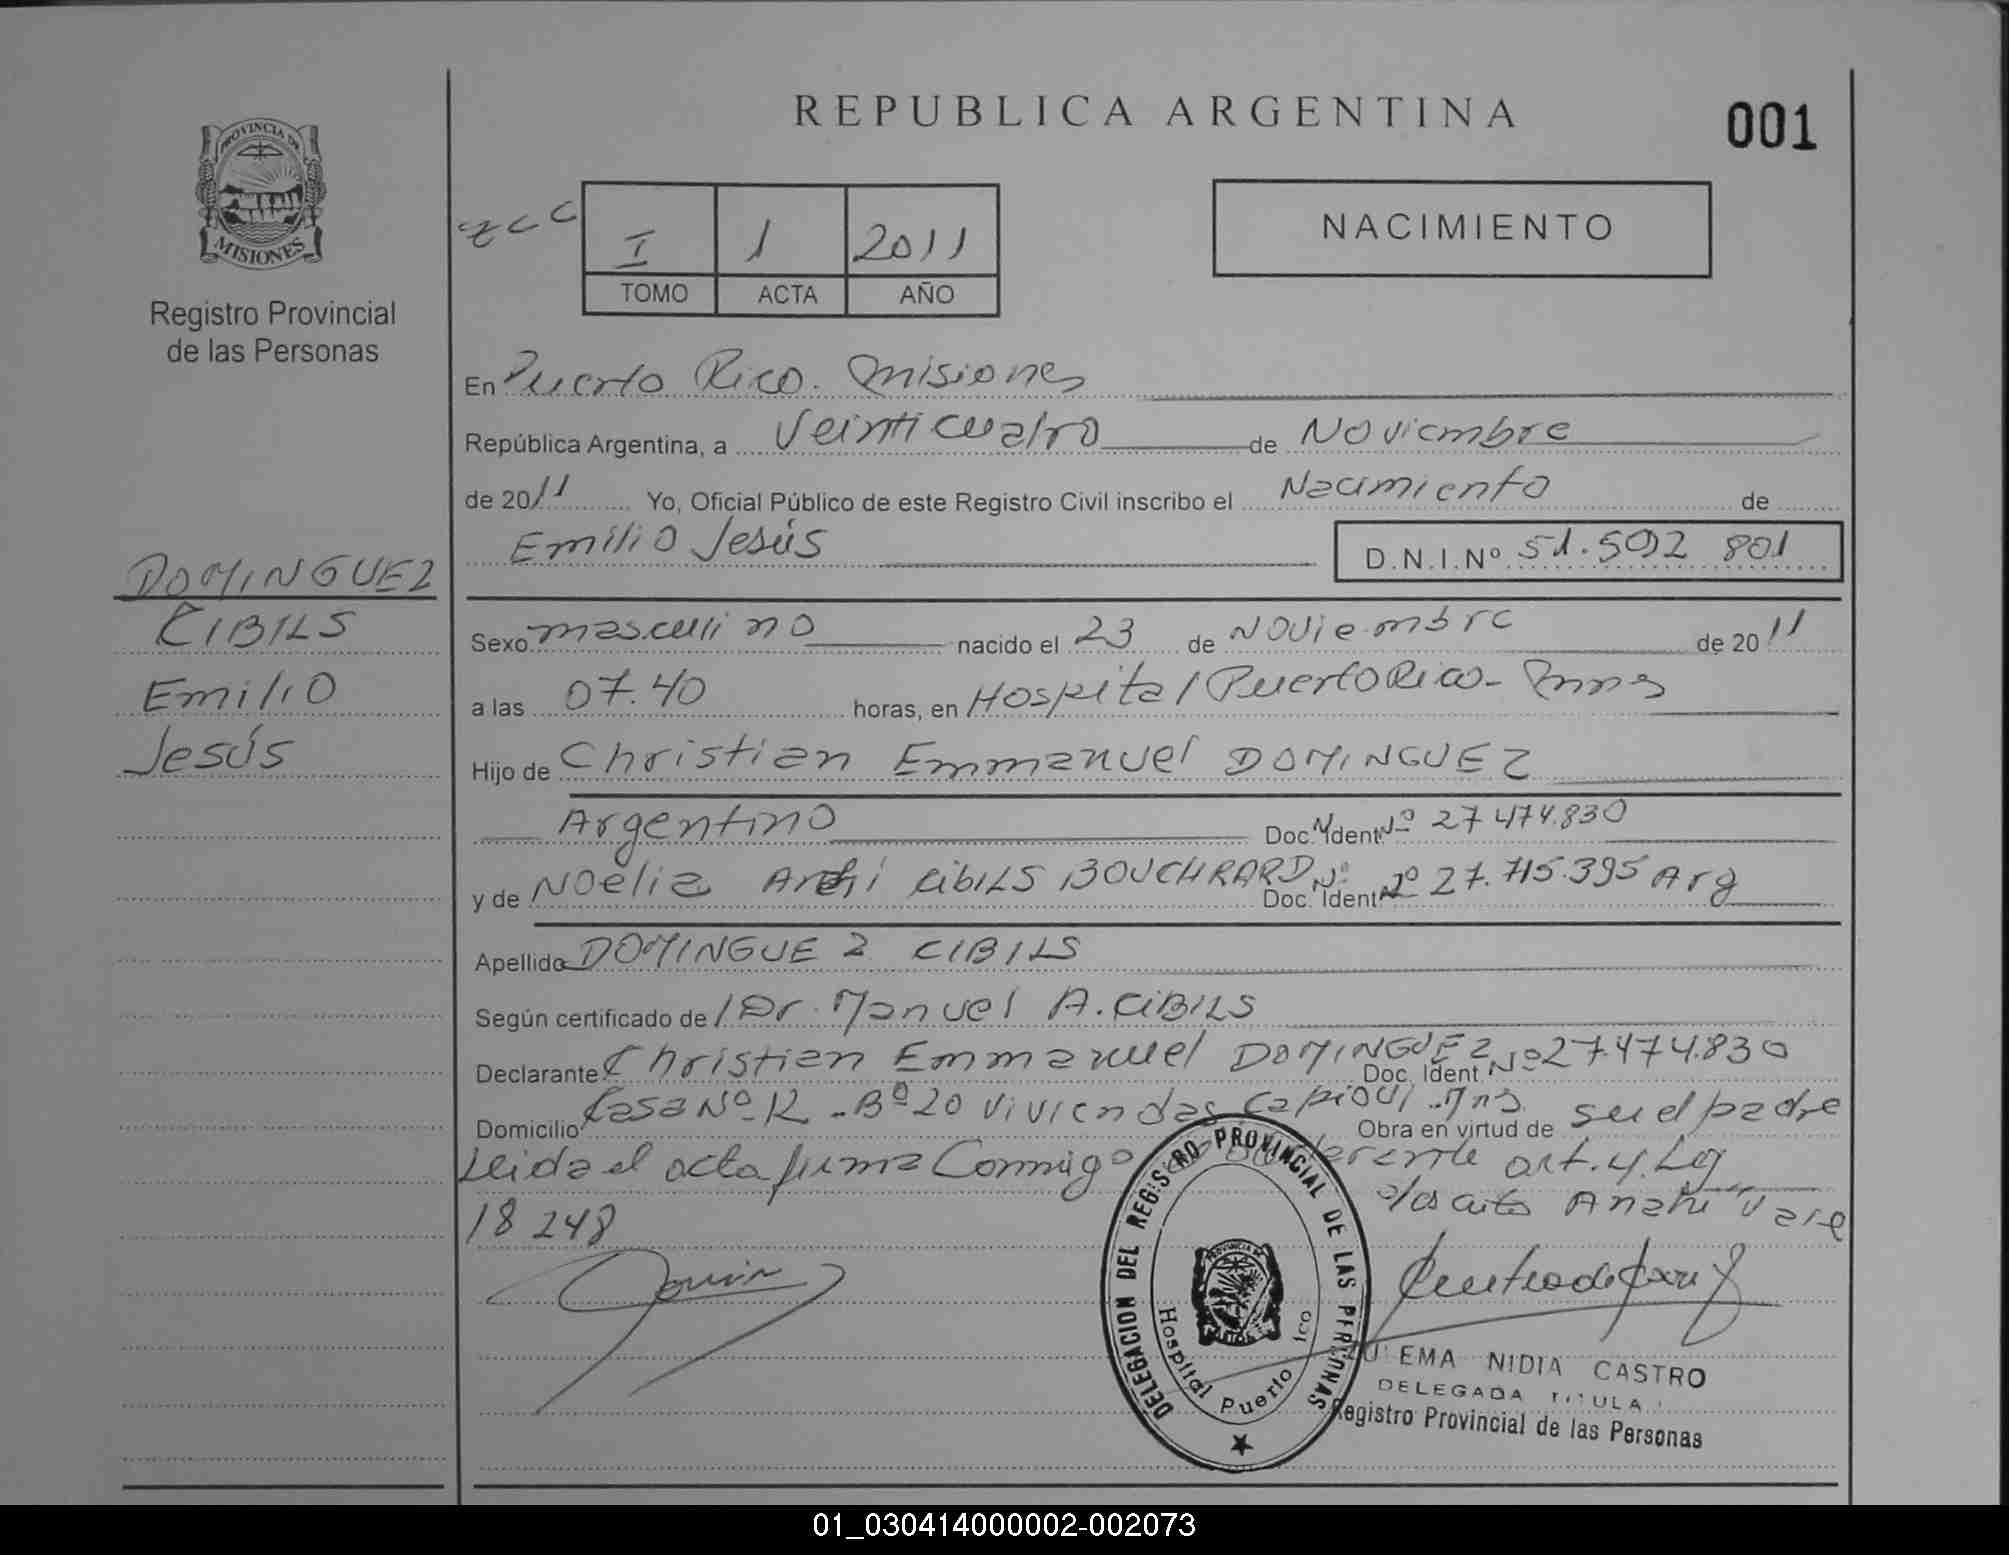 REPUBLICA ARGENTINA
001
PROVINCIA DE
MISIONES
Registro Provincial
de las Personas
I 1 2011
TOMO ACTA AÑO
NACIMIENTO
En Puerto Rico. Misiones
República Argentina, a Veinticuatro de Noviembre
de 2011 Yo, Oficial Público de este Registro Civil inscribo el Nacimiento de
Emilio Jesús D.N.I.Nº 51.592 801
DOMINGUEZ
CIBILS
Emilio
Jesús
Sexo masculino nacido el 23 de Noviembre de 2011
a las 07.40 horas, en Hospital Puerto Rico - Mnes
Hijo de Christian Emmanuel DOMINGUEZ
Argentino Doc. Ident Nº 27 474.830
y de Noelia CIBILS BOUCHRARD Doc. Ident Nº 27.715.395 Arg
Apellido DOMINGUEZ CIBILS
Según certificado de l Dr. Manuel A. CIBILS
Declarante Christian Emmanuel DOMINGUEZ Doc. Ident Nº 27.474.830
Domicilio Casa Nº 12 - Bº 20 Viviendas Capiovi - Mns. Obra en virtud de su el padre
Leida el acta firma Conmigo art. 4. Ley
18 248
Anahi Vale
DELEGACION DEL REGISTRO PROVINCIAL DE LAS PERSONAS
Hospital Puerto ico
EMA NIDIA CASTRO
DELEGADA TITULA
Registro Provincial de las Personas
01_030414000002-002073